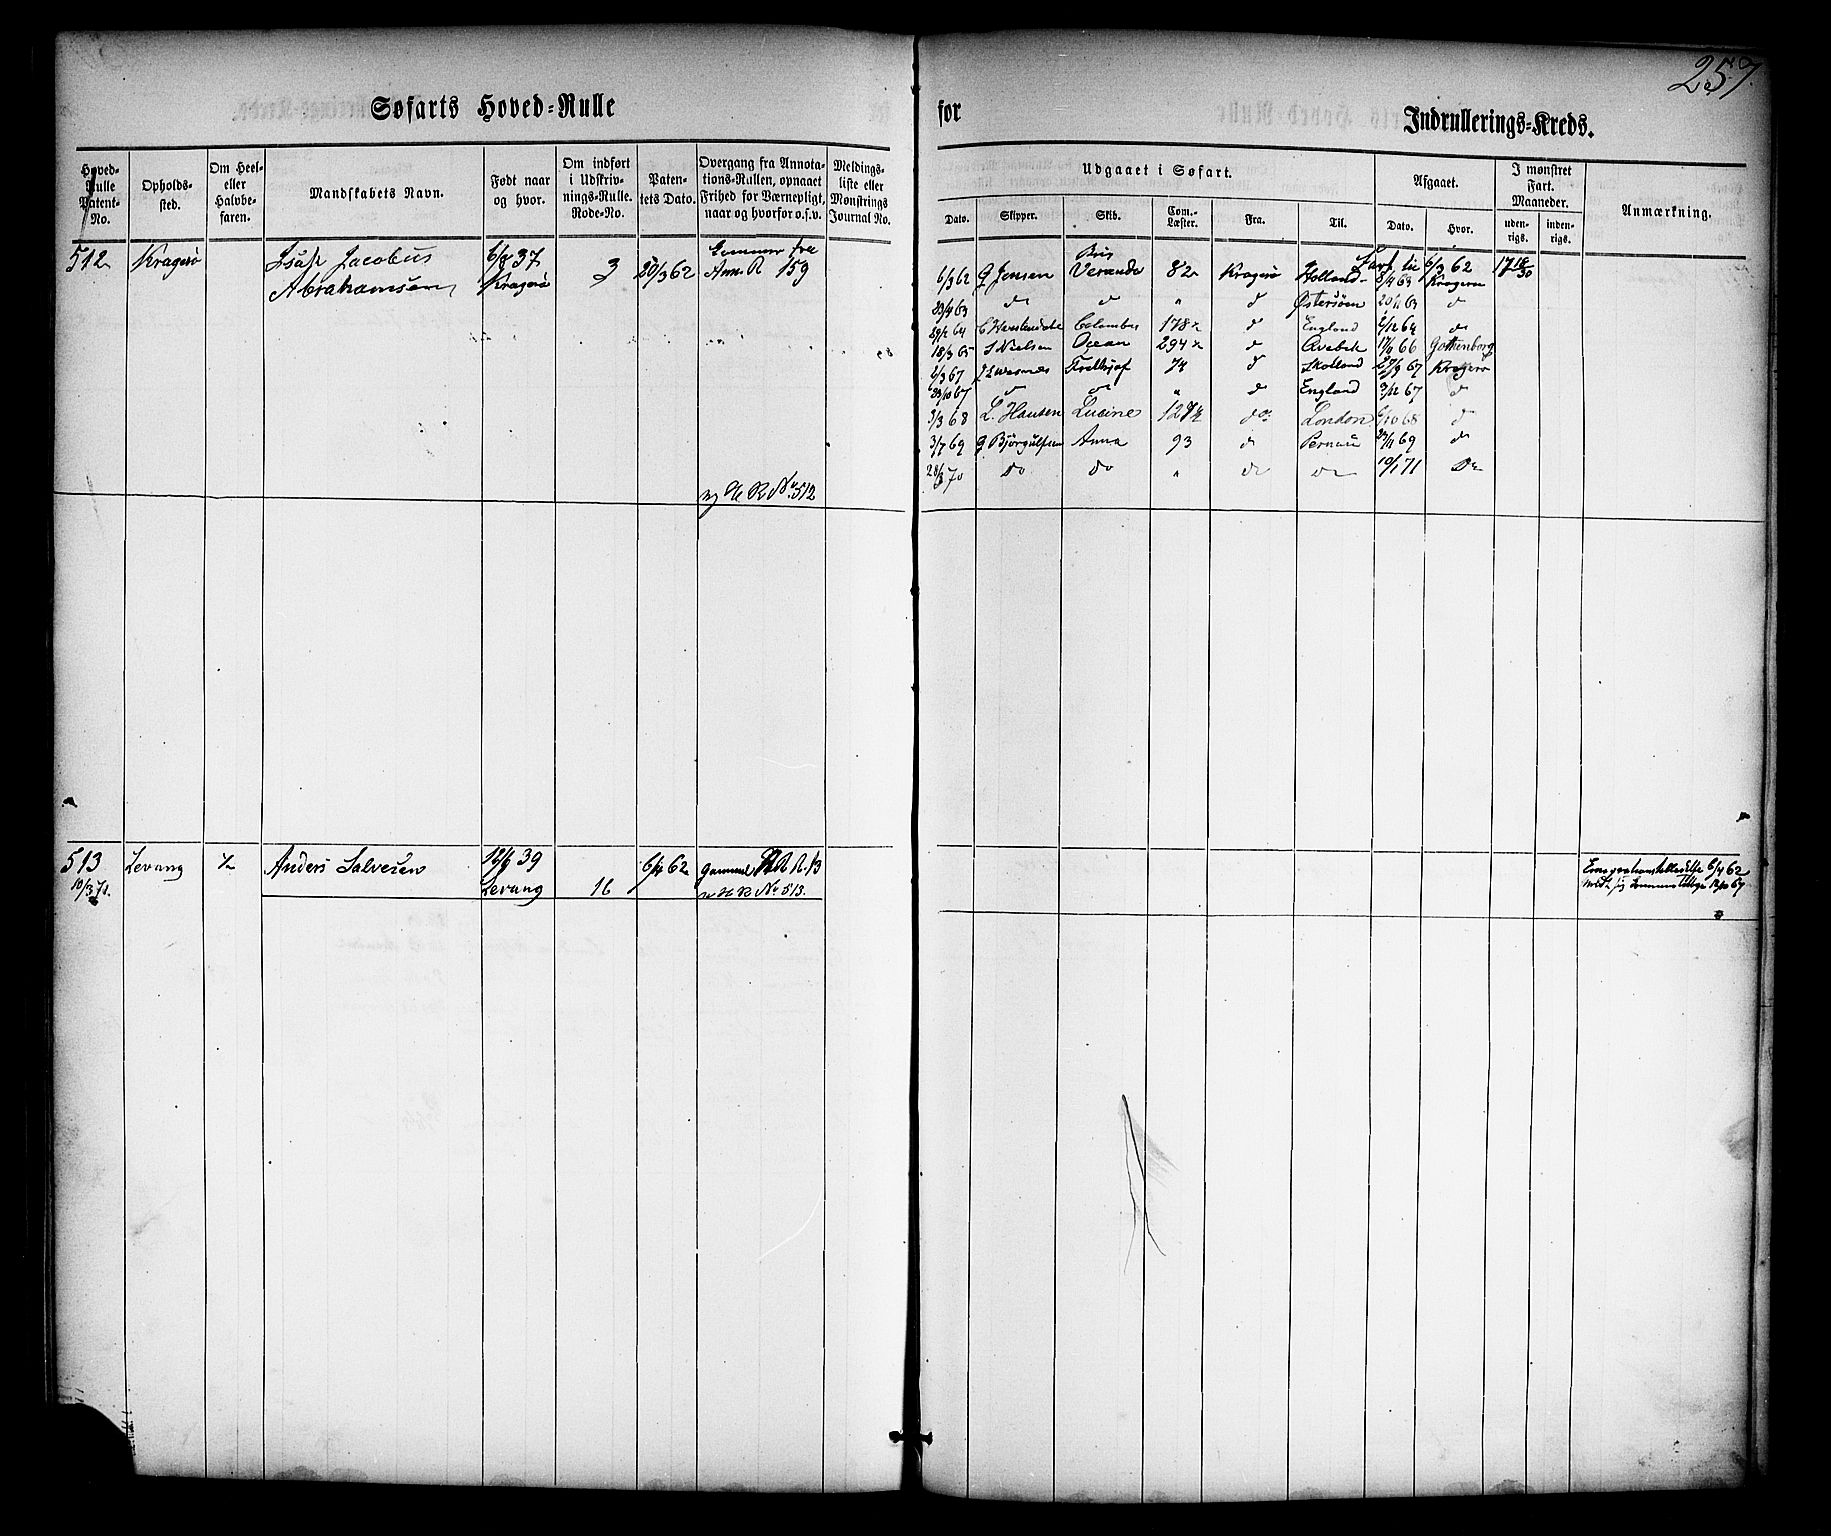 257.
Søfarts Hoved-Rulle
for
Indrullerings-Kreds.
Hoved-Rulle Patent-No.
Opholds-sted.
Om Heel- eller Halvbe-faren.
Mandskabets Navn.
Født naar og hvor.
Om indført i Udskriv-nings-Rulle. Rode-No.
Paten-tets Dato.
Overgang fra Annota-tions-Rullen, opnaaet Frihed for Værnepligt, naar og hvorfor o.s.v.
Meldings-liste eller Mønstrings Journal No.
Udgaaet i Søfart.
Afgaaet.
I mønstret Fart. Maaneder.
Anmærkning.
Dato. Skipper. Skib. Com.-Læster. Fra. Til. Dato. Hvor. uden-rigs. inden-rigs.
512 Kragerø Isak Jacobus 6/8 37 3 20/3 62
Abrahamsen Kragerø Ann. R 159
Fart til 6/3 62 17 18/30
6/3 62 G Jensen Veranda 82 Kragerø Holland 8/4 63 Kragerø
23/4 63 do do " d Østersøen 20/11 63 d
29/2 64 Columbus 178 d England 6/12 64 do
18/3 65 S Nielsen Ocean 294 d 17/11 66 Gothenborg
2/3 67 Fridthjof 74 d Skotland 27/9 67 Kragerø
23/10 67 do do " d England 3/12 67 d
3/3 68 L. Hansen Lucine do London 6/10 68 d
3/7 69 G Bjørgulfsen Anna 93 d Pernau 27/11 69 do
28/3 70 do do " do do 10/1 71 Do
H R No. 512
513 Levang Anders Salvesen 12/6 39 6/4 62 Gammel R R. 13
10/3 71. Levang 16 H R No 513.
6/4 62